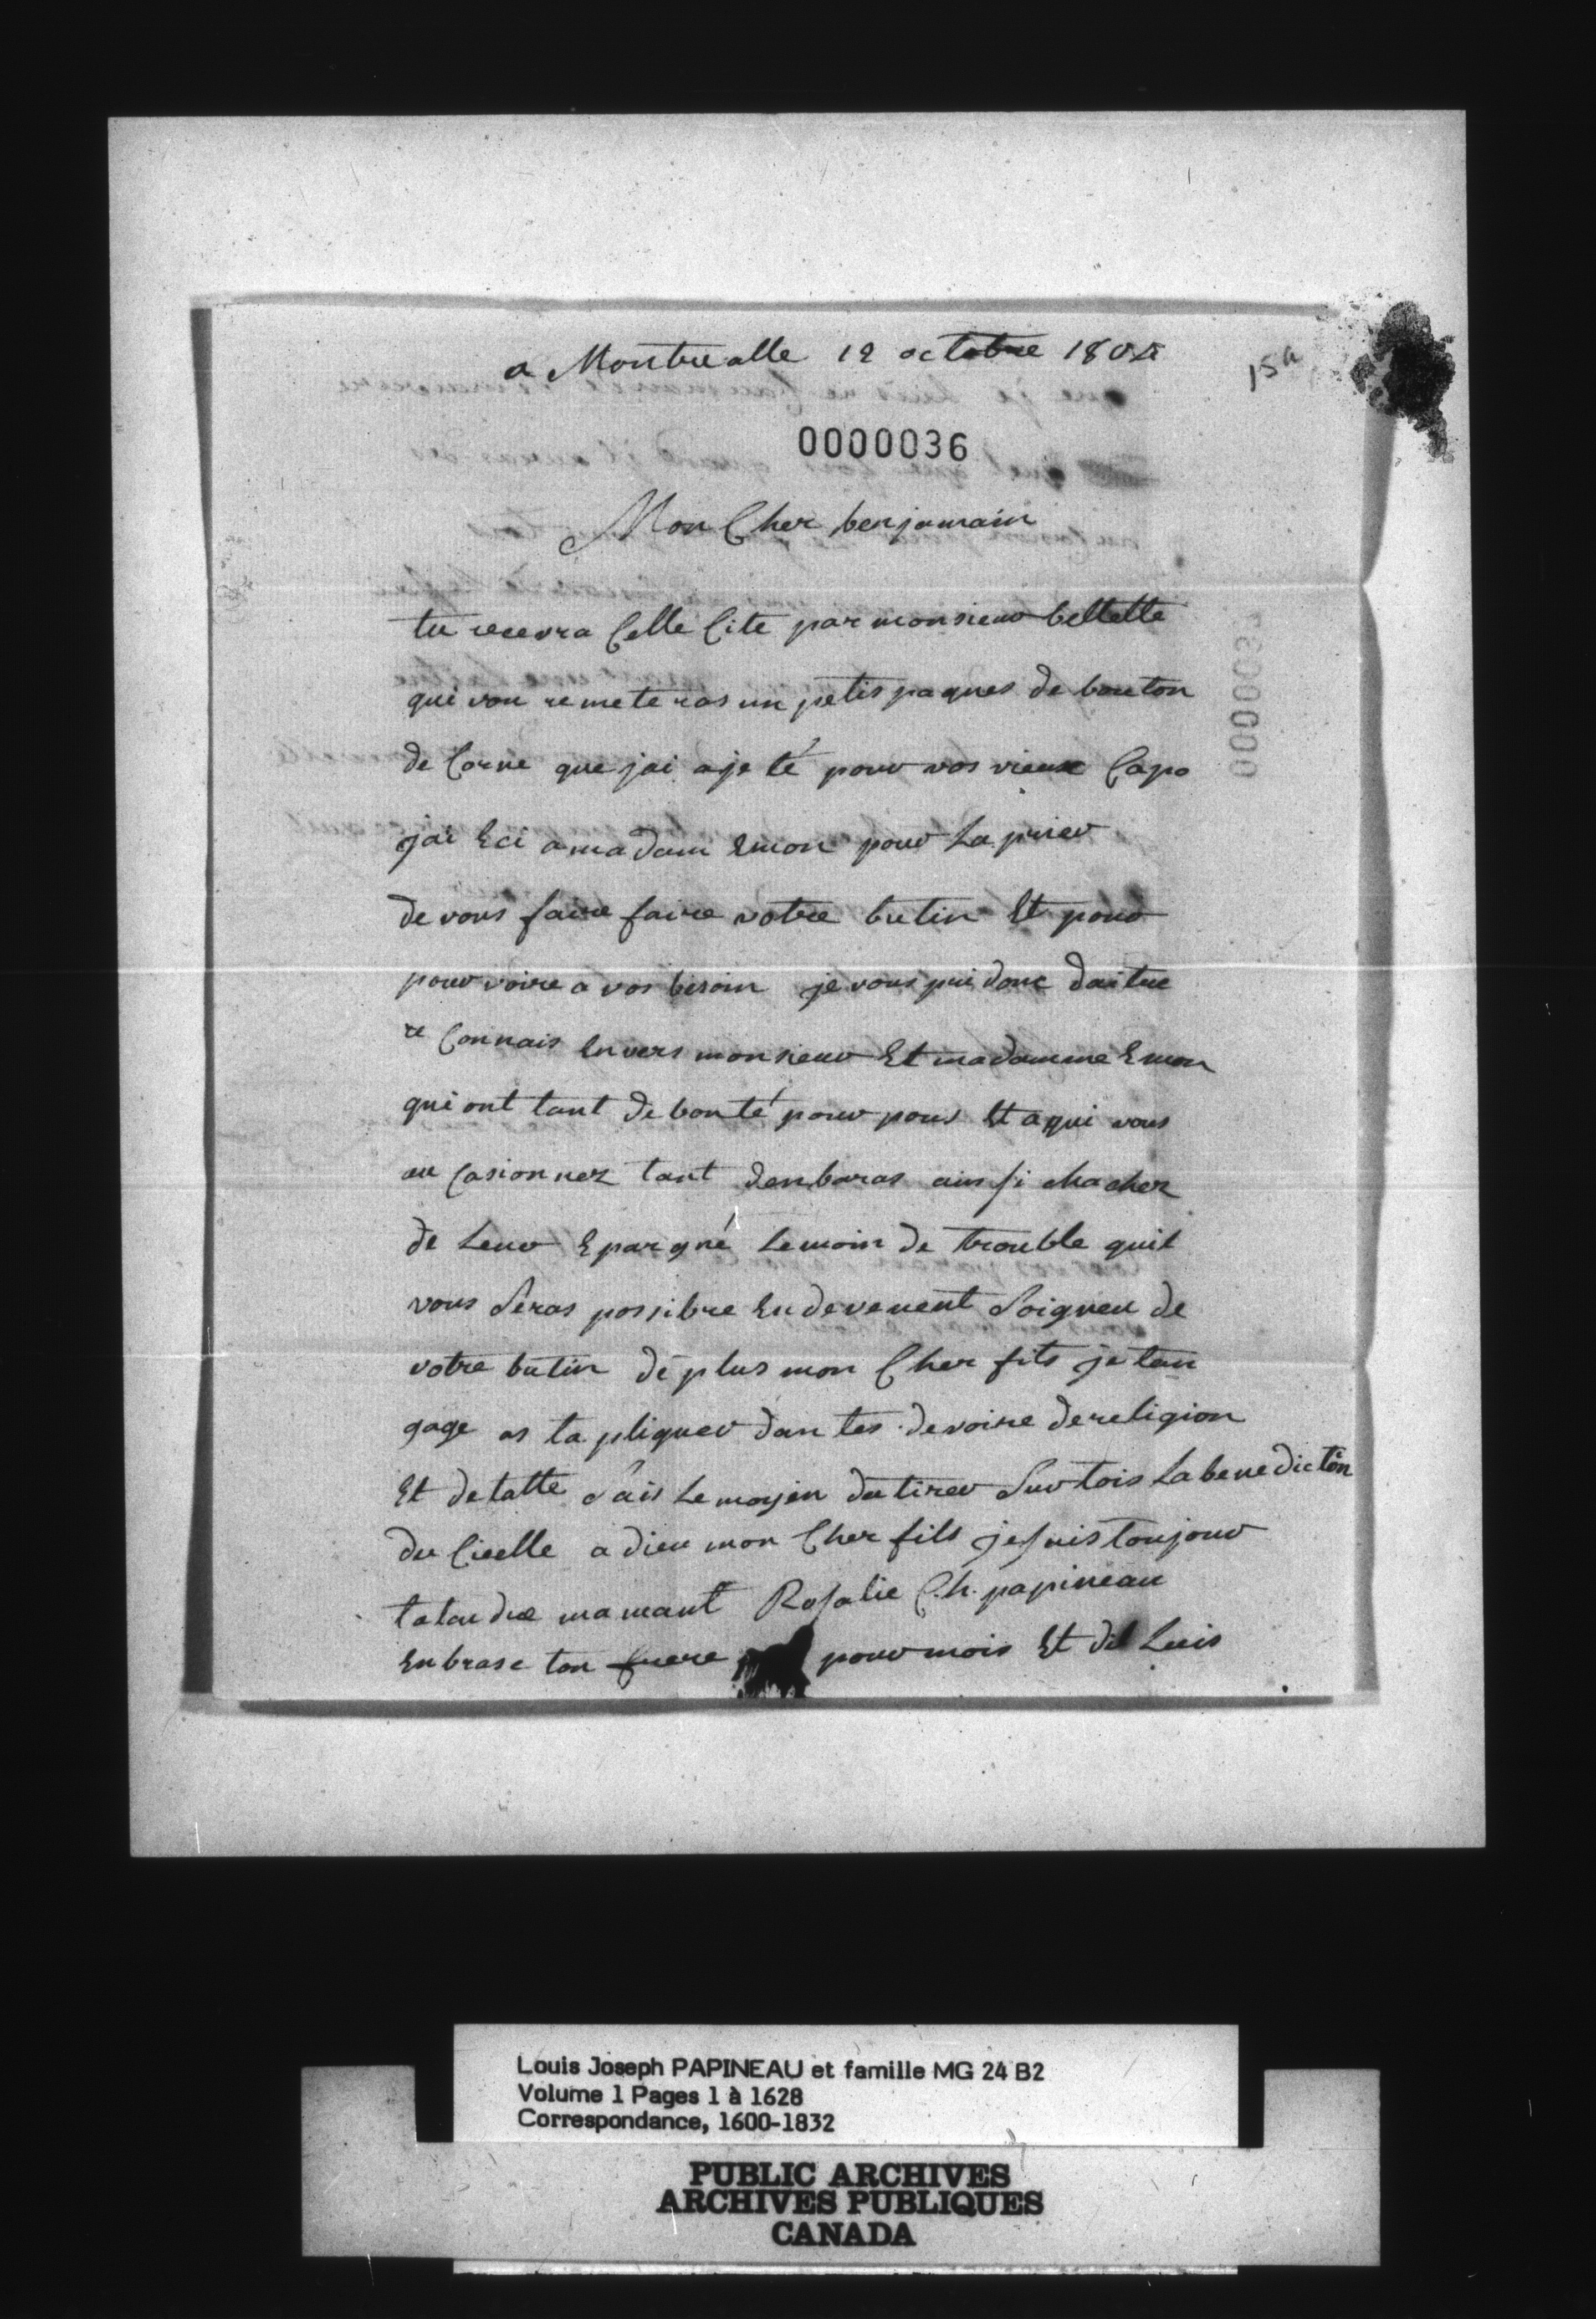 a Montrealle 12 octobre 1804
15a
0000036
Mon Cher benjamain
tu recevra Celle Cite par monsieur bellette
qui vou remeteras un petis paques de bouton
de Corne que jai ajeté pour vos vieux Capo
jai Eci a madam Emon pour La prier
de vous faire faire votre butin Et pour
pourvoire a vos besoin je vous prie donc daitre
re Connais Envers monsieur Et madamme Emon
qui ont tant de bonté pour vous Et a qui vous
au Casionnez tant denbaras ainsi
de Leur Epargné Le moin de trouble quil
vous Seras possibre En devenent Soigneu de
votre butin de plus mon Cher fils je tan
gage as ta pliquer dan tes devoire de religion
Et detatte Sais Le moyen datirer Sur tois La benediction
du Cielle a dieu mon Cher fils je suis toujour
ta tandre mamant Rosalie C.h. papineau
Enbrase ton frere pour mois Et dit Luis
Louis Joseph PAPINEAU et famille MG 24 B2
Volume 1 Pages 1 à 1628
Correspondance, 1600-1832
PUBLIC ARCHIVES
ARCHIVES PUBLIQUES
CANADA